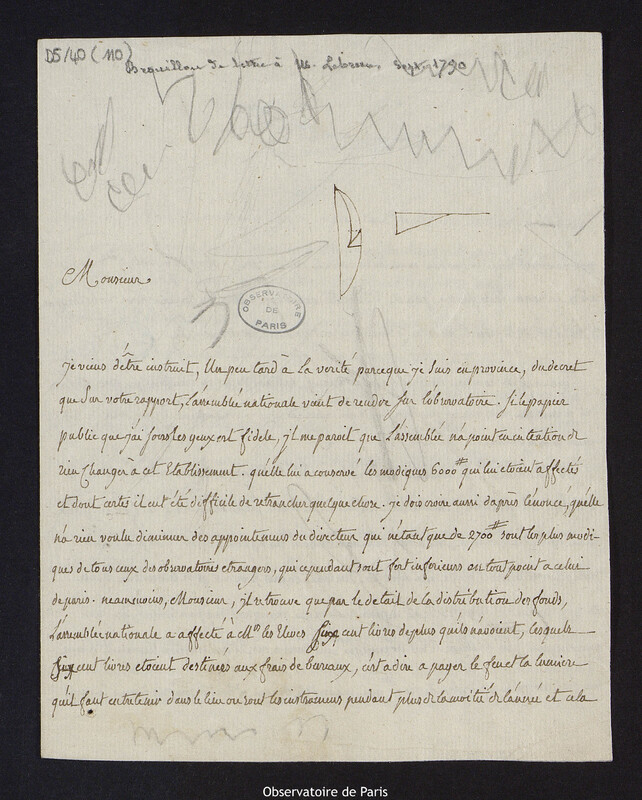 D5/40 (110)
Brouillon de lettre à M. Lebrun, Sept. 1790
Monsieur
OBSERVATOIRE
DE
PARIS
je viens d'être instruit, un peu tard à la verité parceque je suis en province, du decret
que sur votre rapport, l'assemblée nationale vient de rendre sur l'observatoire. si le papier
public que j'ai sous les yeux est fidele, jl me paroit que l'assemblée n'a point eu intention de
rien changer à cet Etablissement. qu'elle lui a conservé les modiques 6000# qui lui etoient affectés
et dont certes il eut été difficile de retrancher quelque chose. je dois croire aussi d'après l'énoncé, qu'elle
n'a rien voulu diminuer des appointemens du directeur que n'etant que de 2700# sont les plus modi-
ques de tous ceux des observatoires etrangers, qui cependant sont fort inferieurs en tout point a celui
de paris. neammoins, Monsieur, jl se trouve que par le detail de la distribution des fonds,
l'assemblée nationale a affecté à Mrs les Eleves six cent livres de plus qu'ils n'avoient, lesquels
six cent livres etoient destinées aux frais de bureaux, c'est a dire a payer le feu et la lumiere
qu'il faut entretenir dans le lieu ou sont les instrumens pendant plus de la moitié de l'année et cela
Observatoire de Paris